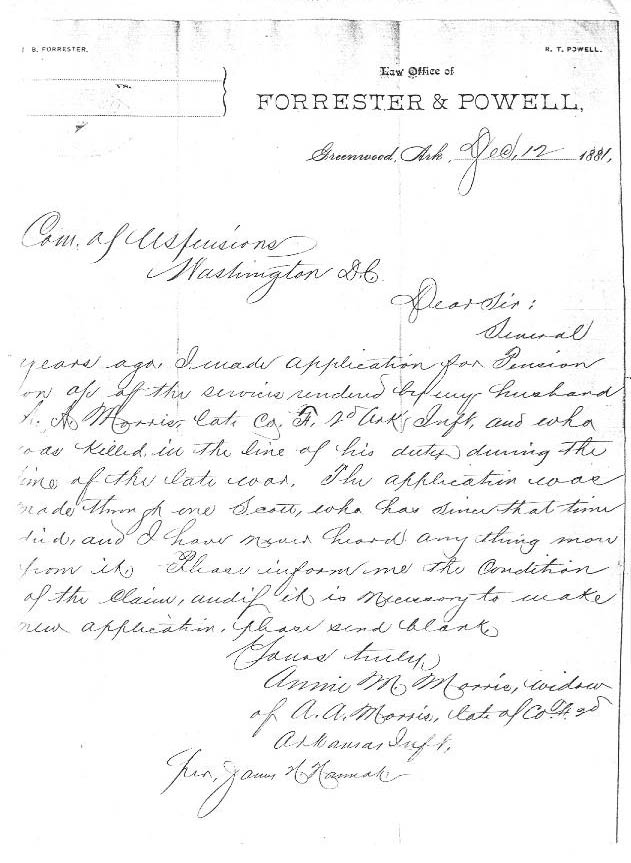 B. FORRESTER.
R. T. POWELL.
vs.
Law Office of
FORRESTER & POWELL,
Greenwood, Ark. Dec, 12 1881,
Com. of Uspensions
Washington D.C.
Dear Sir:
Several
years ago, I made application for Pension
on a/c of the services rendered by my husband
A. Morris, late Co. F, 2d Ark, Inft, and who
was killed in the line of his duty during the
time of the late war. The application was
made through one Scott, who has since that time
died, and I have never heard any thing more
from it. Please inform me the Condition
of the Claim, and if it is necessary to make
new application, please send blank
Yours truly,
Annie M. Morris, widow
of A. A. Morris, late of Co. F. 2d
Arkansas Inft,
Per, James Hannah